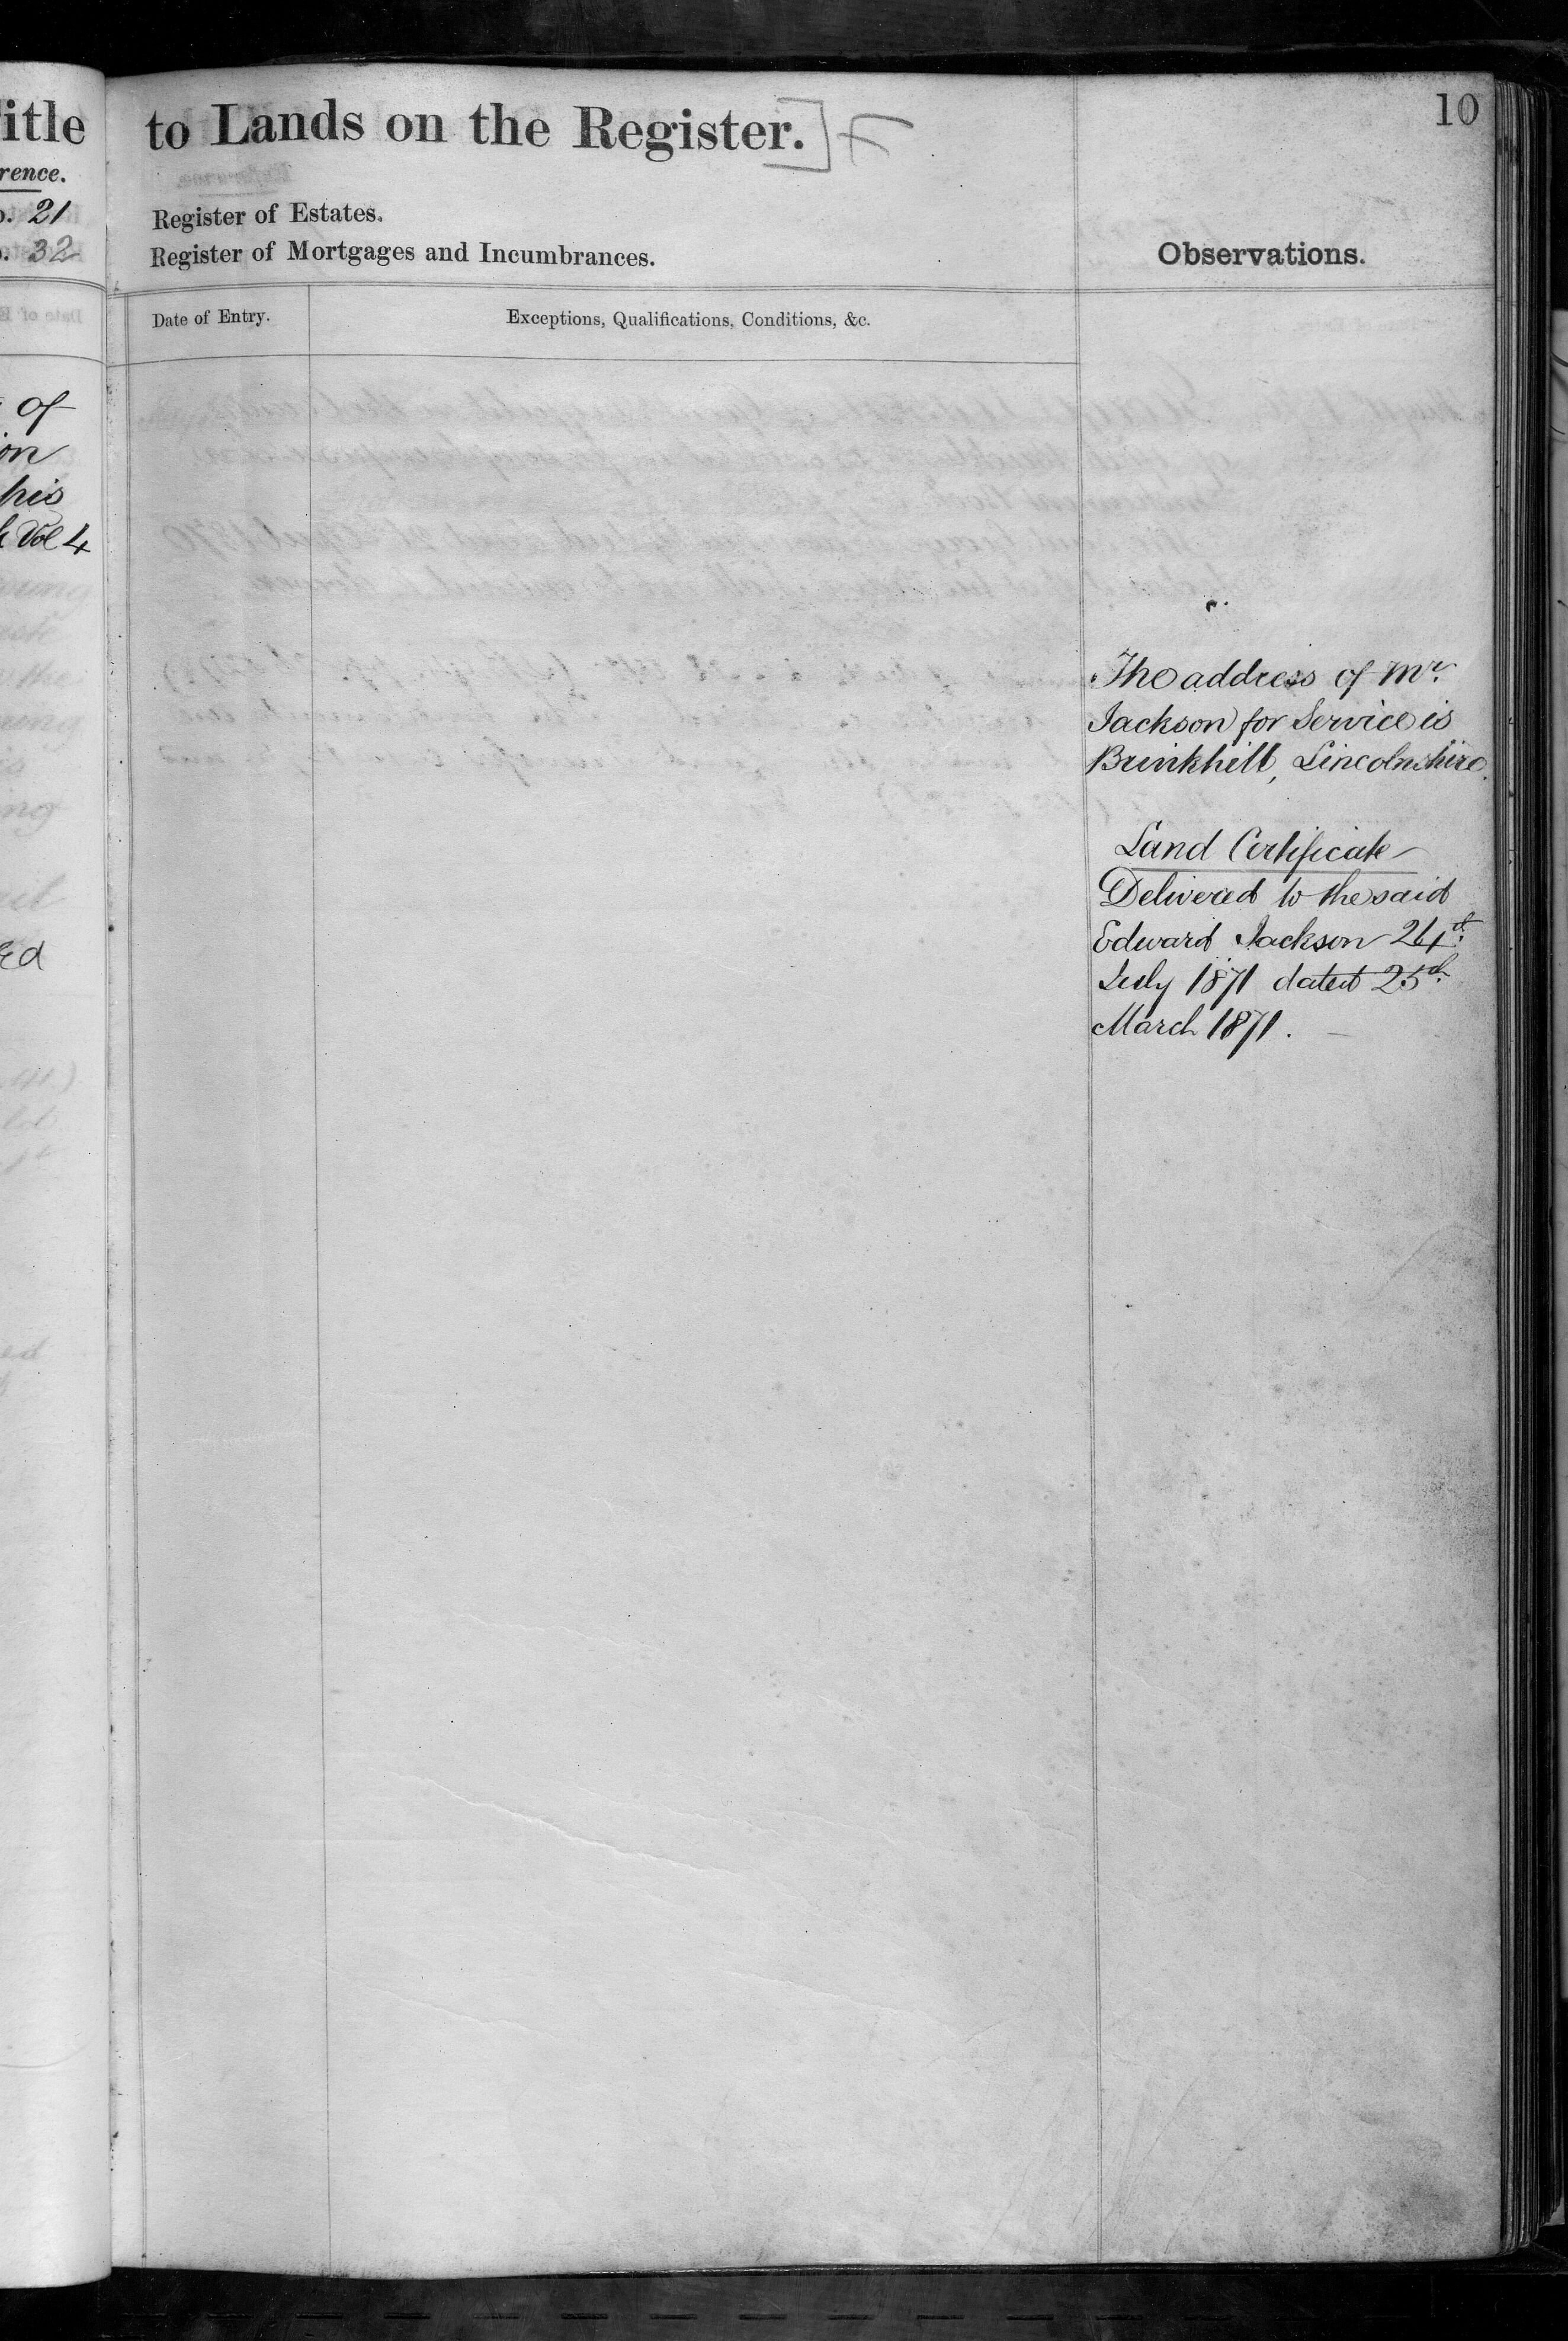 itle
rence.
21
32
of
on
his
Vol 4
ed
to Lands on the Register.]
10
Register of Estates.
Register of Mortgages and Incumbrances.
Observations.
Date of Entry.
Exceptions, Qualifications, Conditions, &c.
The address of Mr.
Jackson for Service is
Brinkhill, Lincolnshire.
Land Certificate
Delivered to the said
Edward Jackson 24th
July 1871 dated 25th
March 1871.